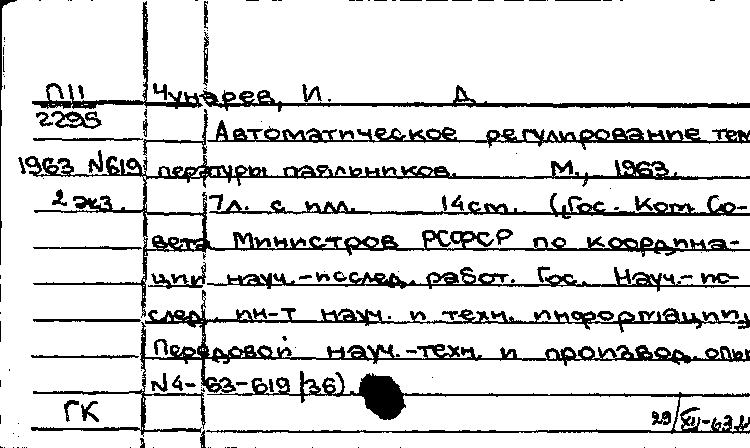 П11 Чунарев, И. Д.
2295
Автоматическое регулирование тем
1963 №619 пературы паяльников. М., 1963.
2 экз. 7л. с илл. 14см. (Гос. Ком. Со-
вета Министров РСФСР по координа-
ции науч.-исслед. работ. Гос. Науч.-ис-
след. ин-т науч. и техн. информации,
Передовой науч.-техн. и производ. опы
N4-63-619/36)
ГК 29/XII-63